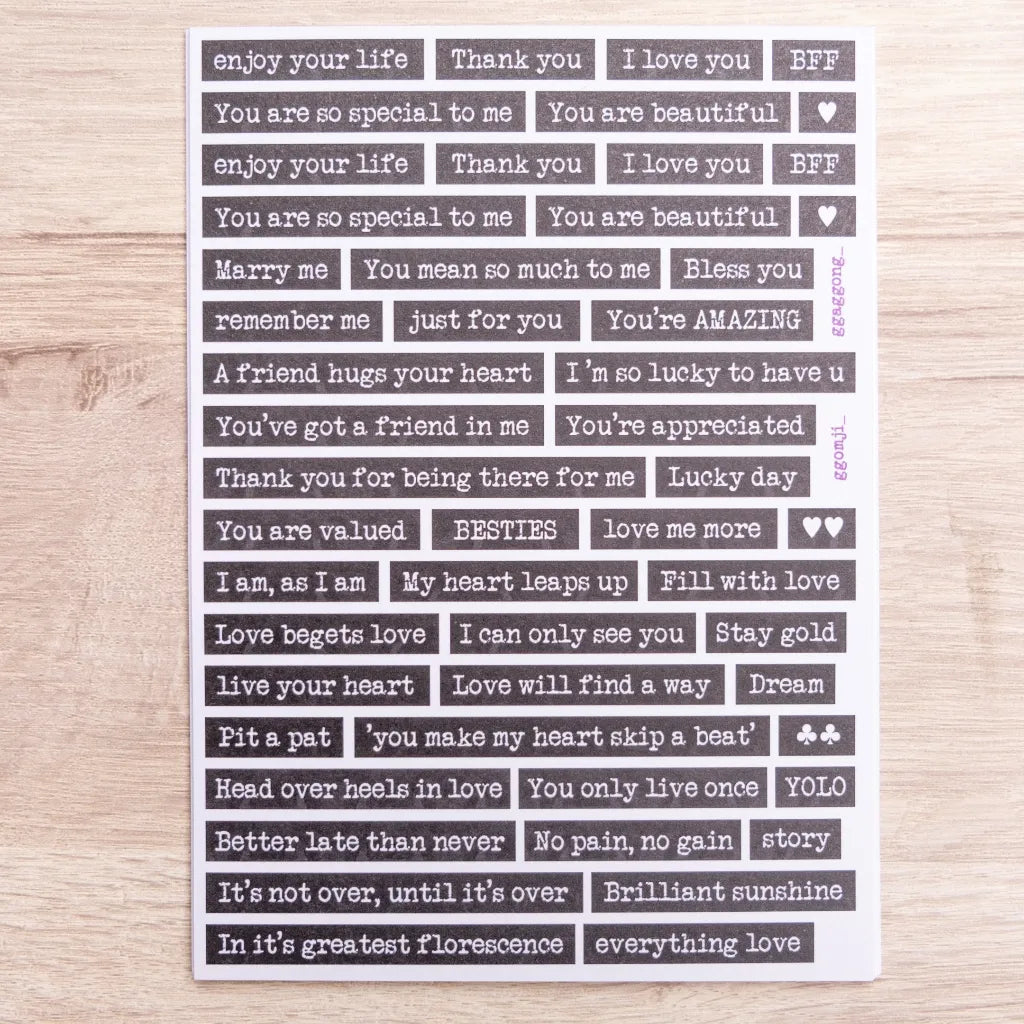 enjoy your life Thank you I love you BFF
You are so special to me You are beautiful ♥
enjoy your life Thank you I love you BFF
You are so special to me You are beautiful ♥
Marry me You mean so much to me Bless you
ggaggong_
remember me just for you You're AMAZING
A friend hugs your heart I'm so lucky to have u
You've got a friend in me You're appreciated
ggomji_
Thank you for being there for me Lucky day
You are valued BESTIES love me more ♥♥
I am, as I am My heart leaps up Fill with love
Love begets love I can only see you Stay gold
live your heart Love will find a way Dream
Pit a pat 'you make my heart skip a beat' ♣♣
Head over heels in love You only live once YOLO
Better late than never No pain, no gain story
It's not over, until it's over Brilliant sunshine
In it's greatest florescence everything love